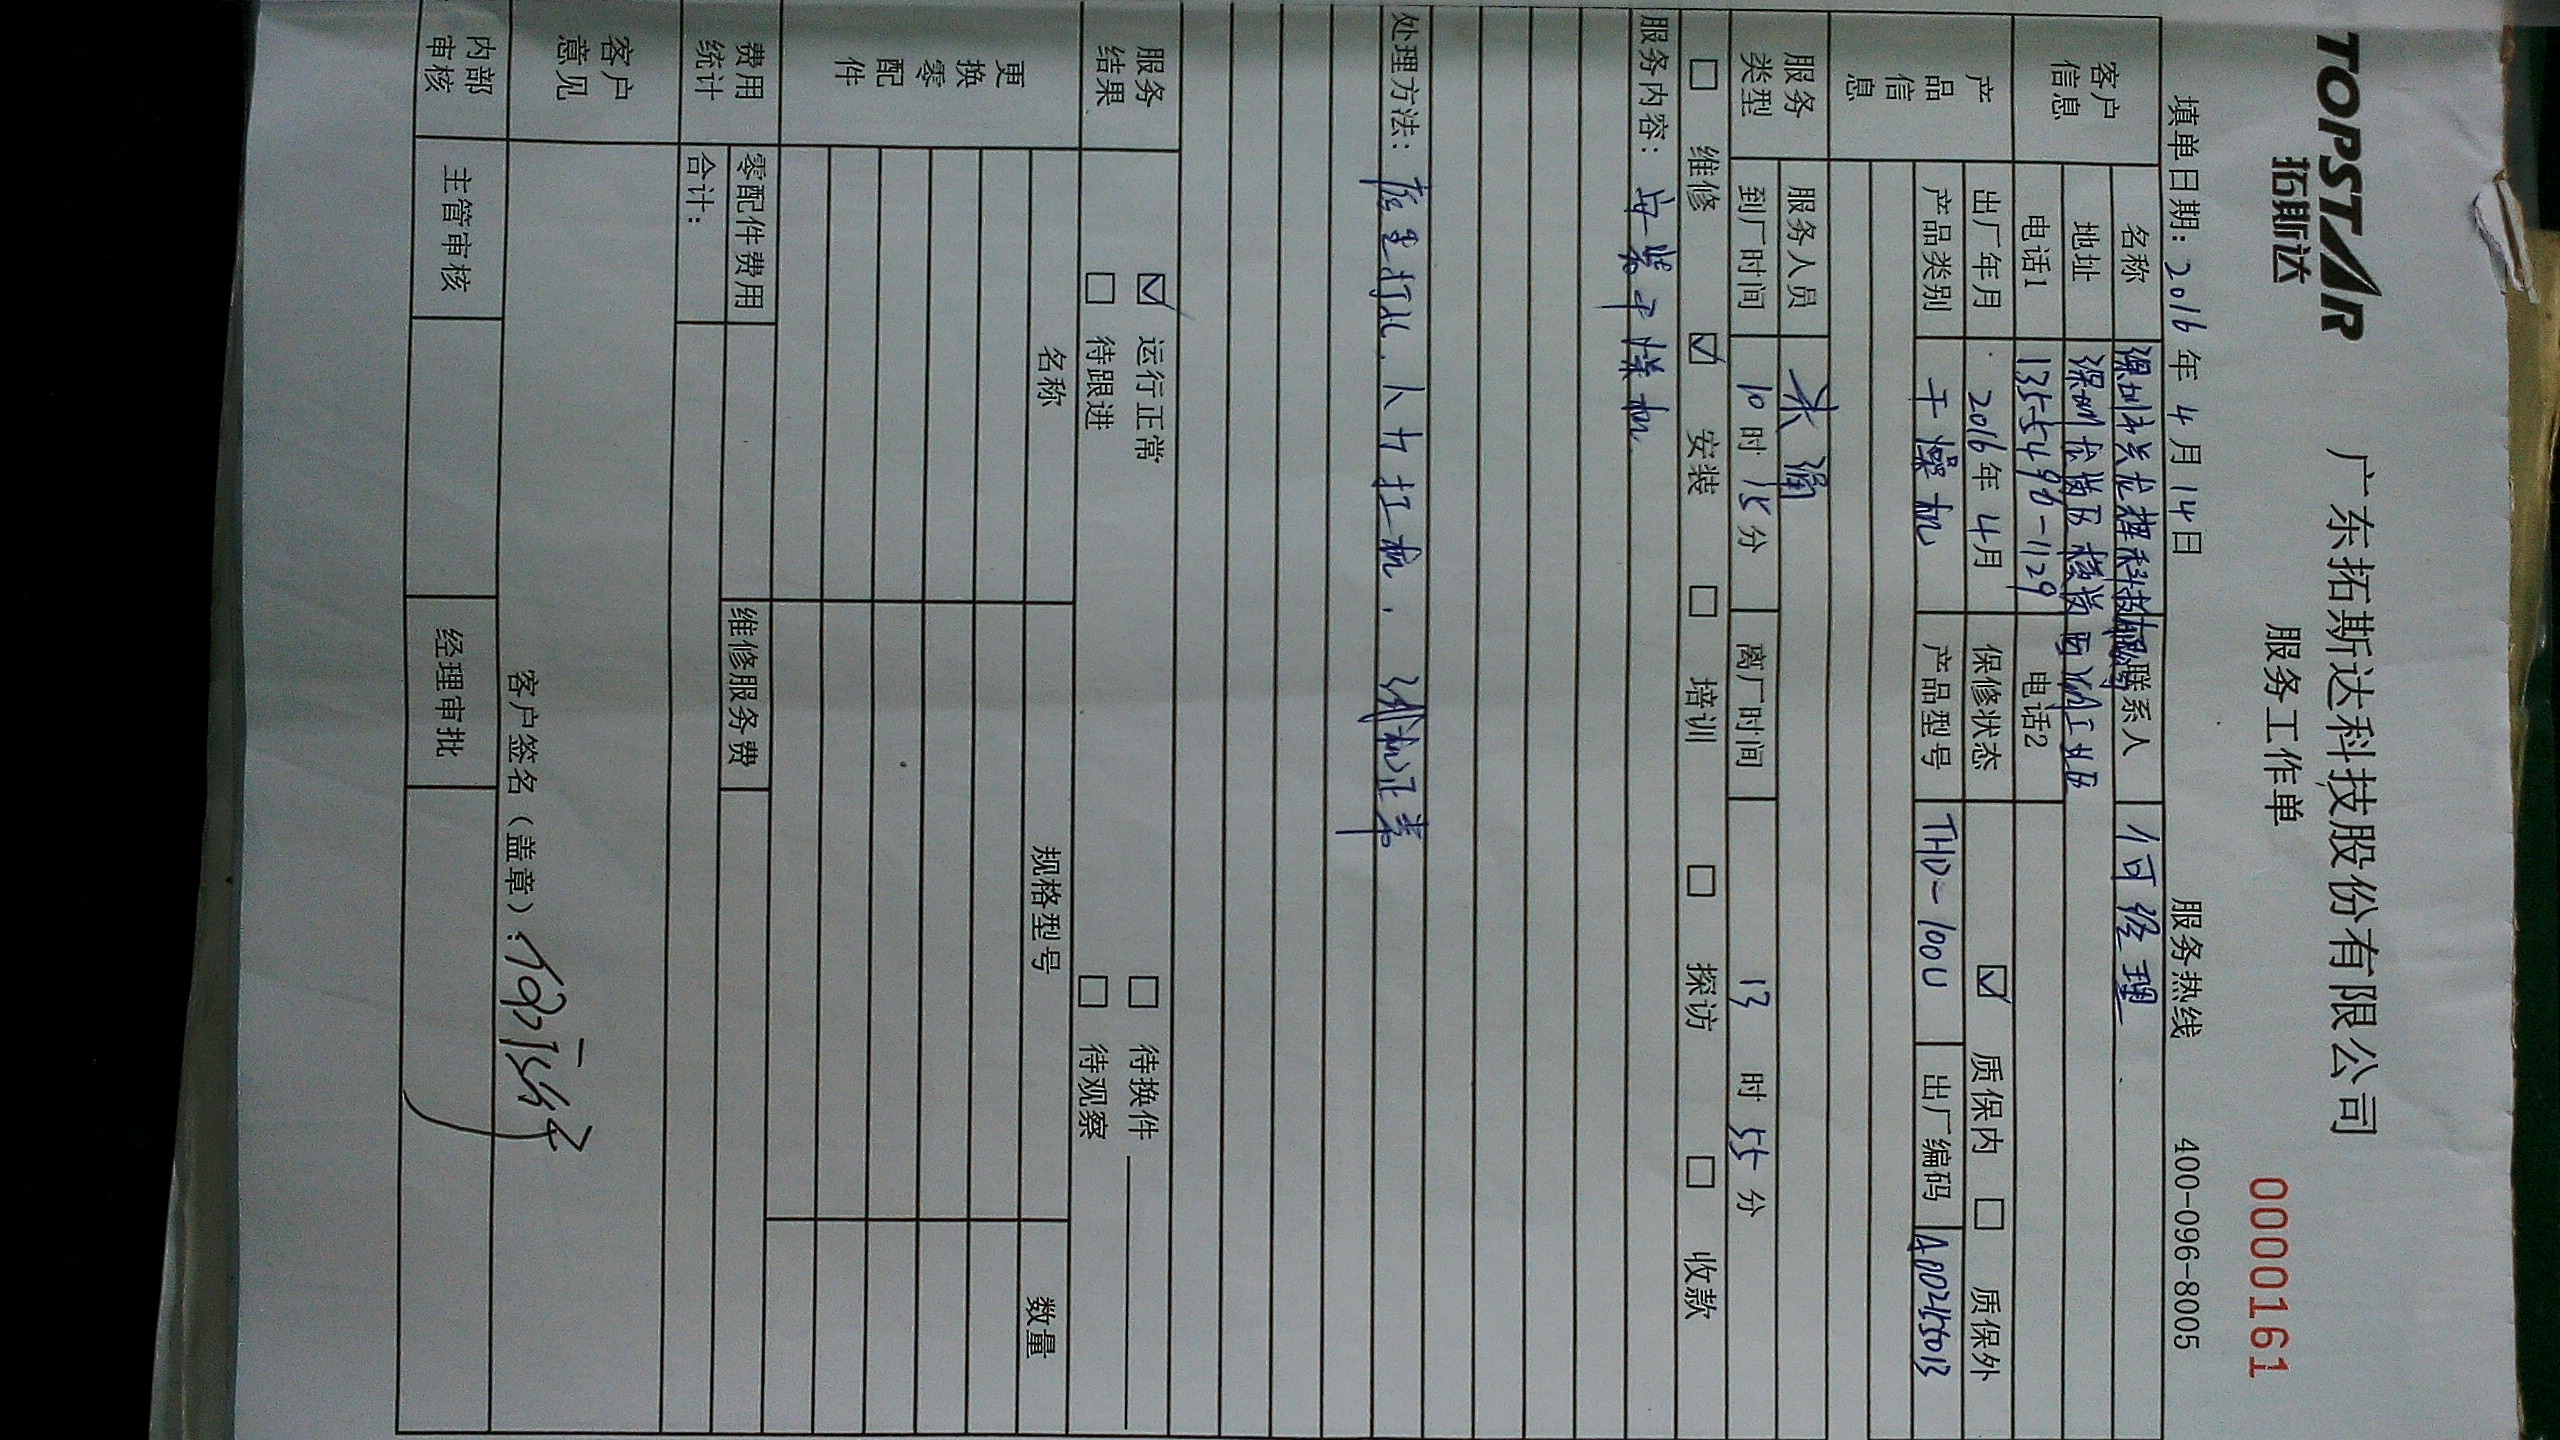 TOPSTAR
拓斯达
广东拓斯达科技股份有限公司
服务工作单
00001611
填单日期: 2016 年 4 月 14 日 服务热线 400-096-8005
客户信息 名称 深圳市兴龙辉科技有限公司 联系人 何经理
地址 深圳龙岗区横岗西湖工业区
电话1 135-5496-1129 电话2
产品信息 出厂年月 2016 年 4 月 保修状态 ☑ 质保内 □ 质保外
产品类别 干燥机 产品型号 THD-100U 出厂编码 A00215013
服务类型 服务人员 米澜
到厂时间 10 时 15 分 离厂时间 13 时 55 分
□ 维修 ☑ 安装 □ 培训 □ 探访 □ 收款
服务内容: 安装干燥机.
处理方法: 打孔. 人力扛机, 试机正常
服务结果 ☑ 运行正常 □ 待换件
□ 待跟进 □ 待观察
更换零配件 名称 规格型号 数量
费用统计 零配件费用 维修服务费
合计:
客户意见
客户签名(盖章):
内部审核 主管审核 经理审批